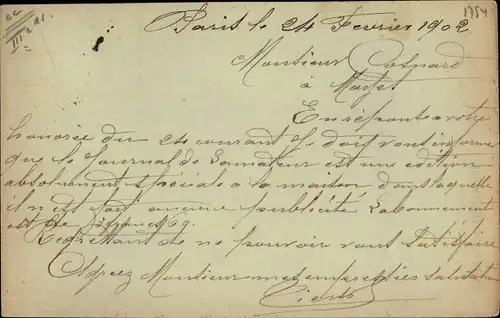 Paris le 24 Fevrier 1902
1754
Monsieur Cosnard
à Mayet
En réponse a votre
honorée du 24 courant Je doit vous informer
que le Journal de L'amateur est une édition
absolument spéciale a la maison dans laquelle
il n'est fait aucune publicité L'abonnement
est de 3 francs 60.
Regrettant de ne pouvoir vous satisfaire
Agréez Monsieur mes empressées salutations